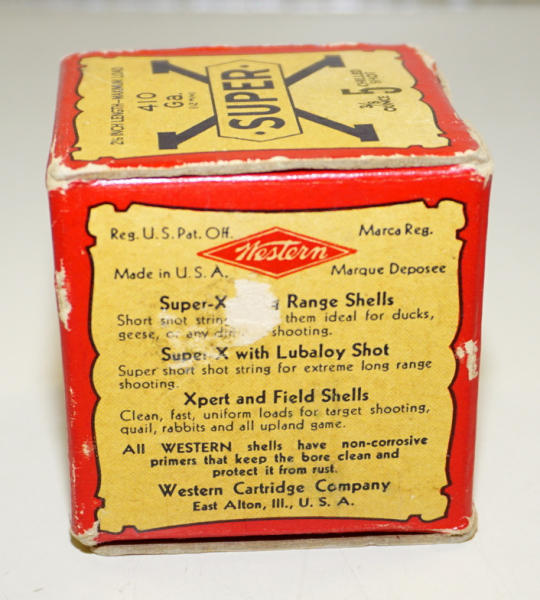 2½ INCH LENGTH—MAXIMUM LOAD
410
Ga.
(12 M/M)
SUPER
X
3/4
OUNCE
5 CHILLED
SHOT
Reg. U.S. Pat. Off.
Western
Marca Reg.
Made in U.S.A.
Marque Deposee
Super-X Range Shells
Short shot string them ideal for ducks,
geese, or any shooting.
Super-X with Lubaloy Shot
Super short shot string for extreme long range
shooting.
Xpert and Field Shells
Clean, fast, uniform loads for target shooting,
quail, rabbits and all upland game.
All WESTERN shells have non-corrosive
primers that keep the bore clean and
protect it from rust.
Western Cartridge Company
East Alton, Ill., U. S. A.